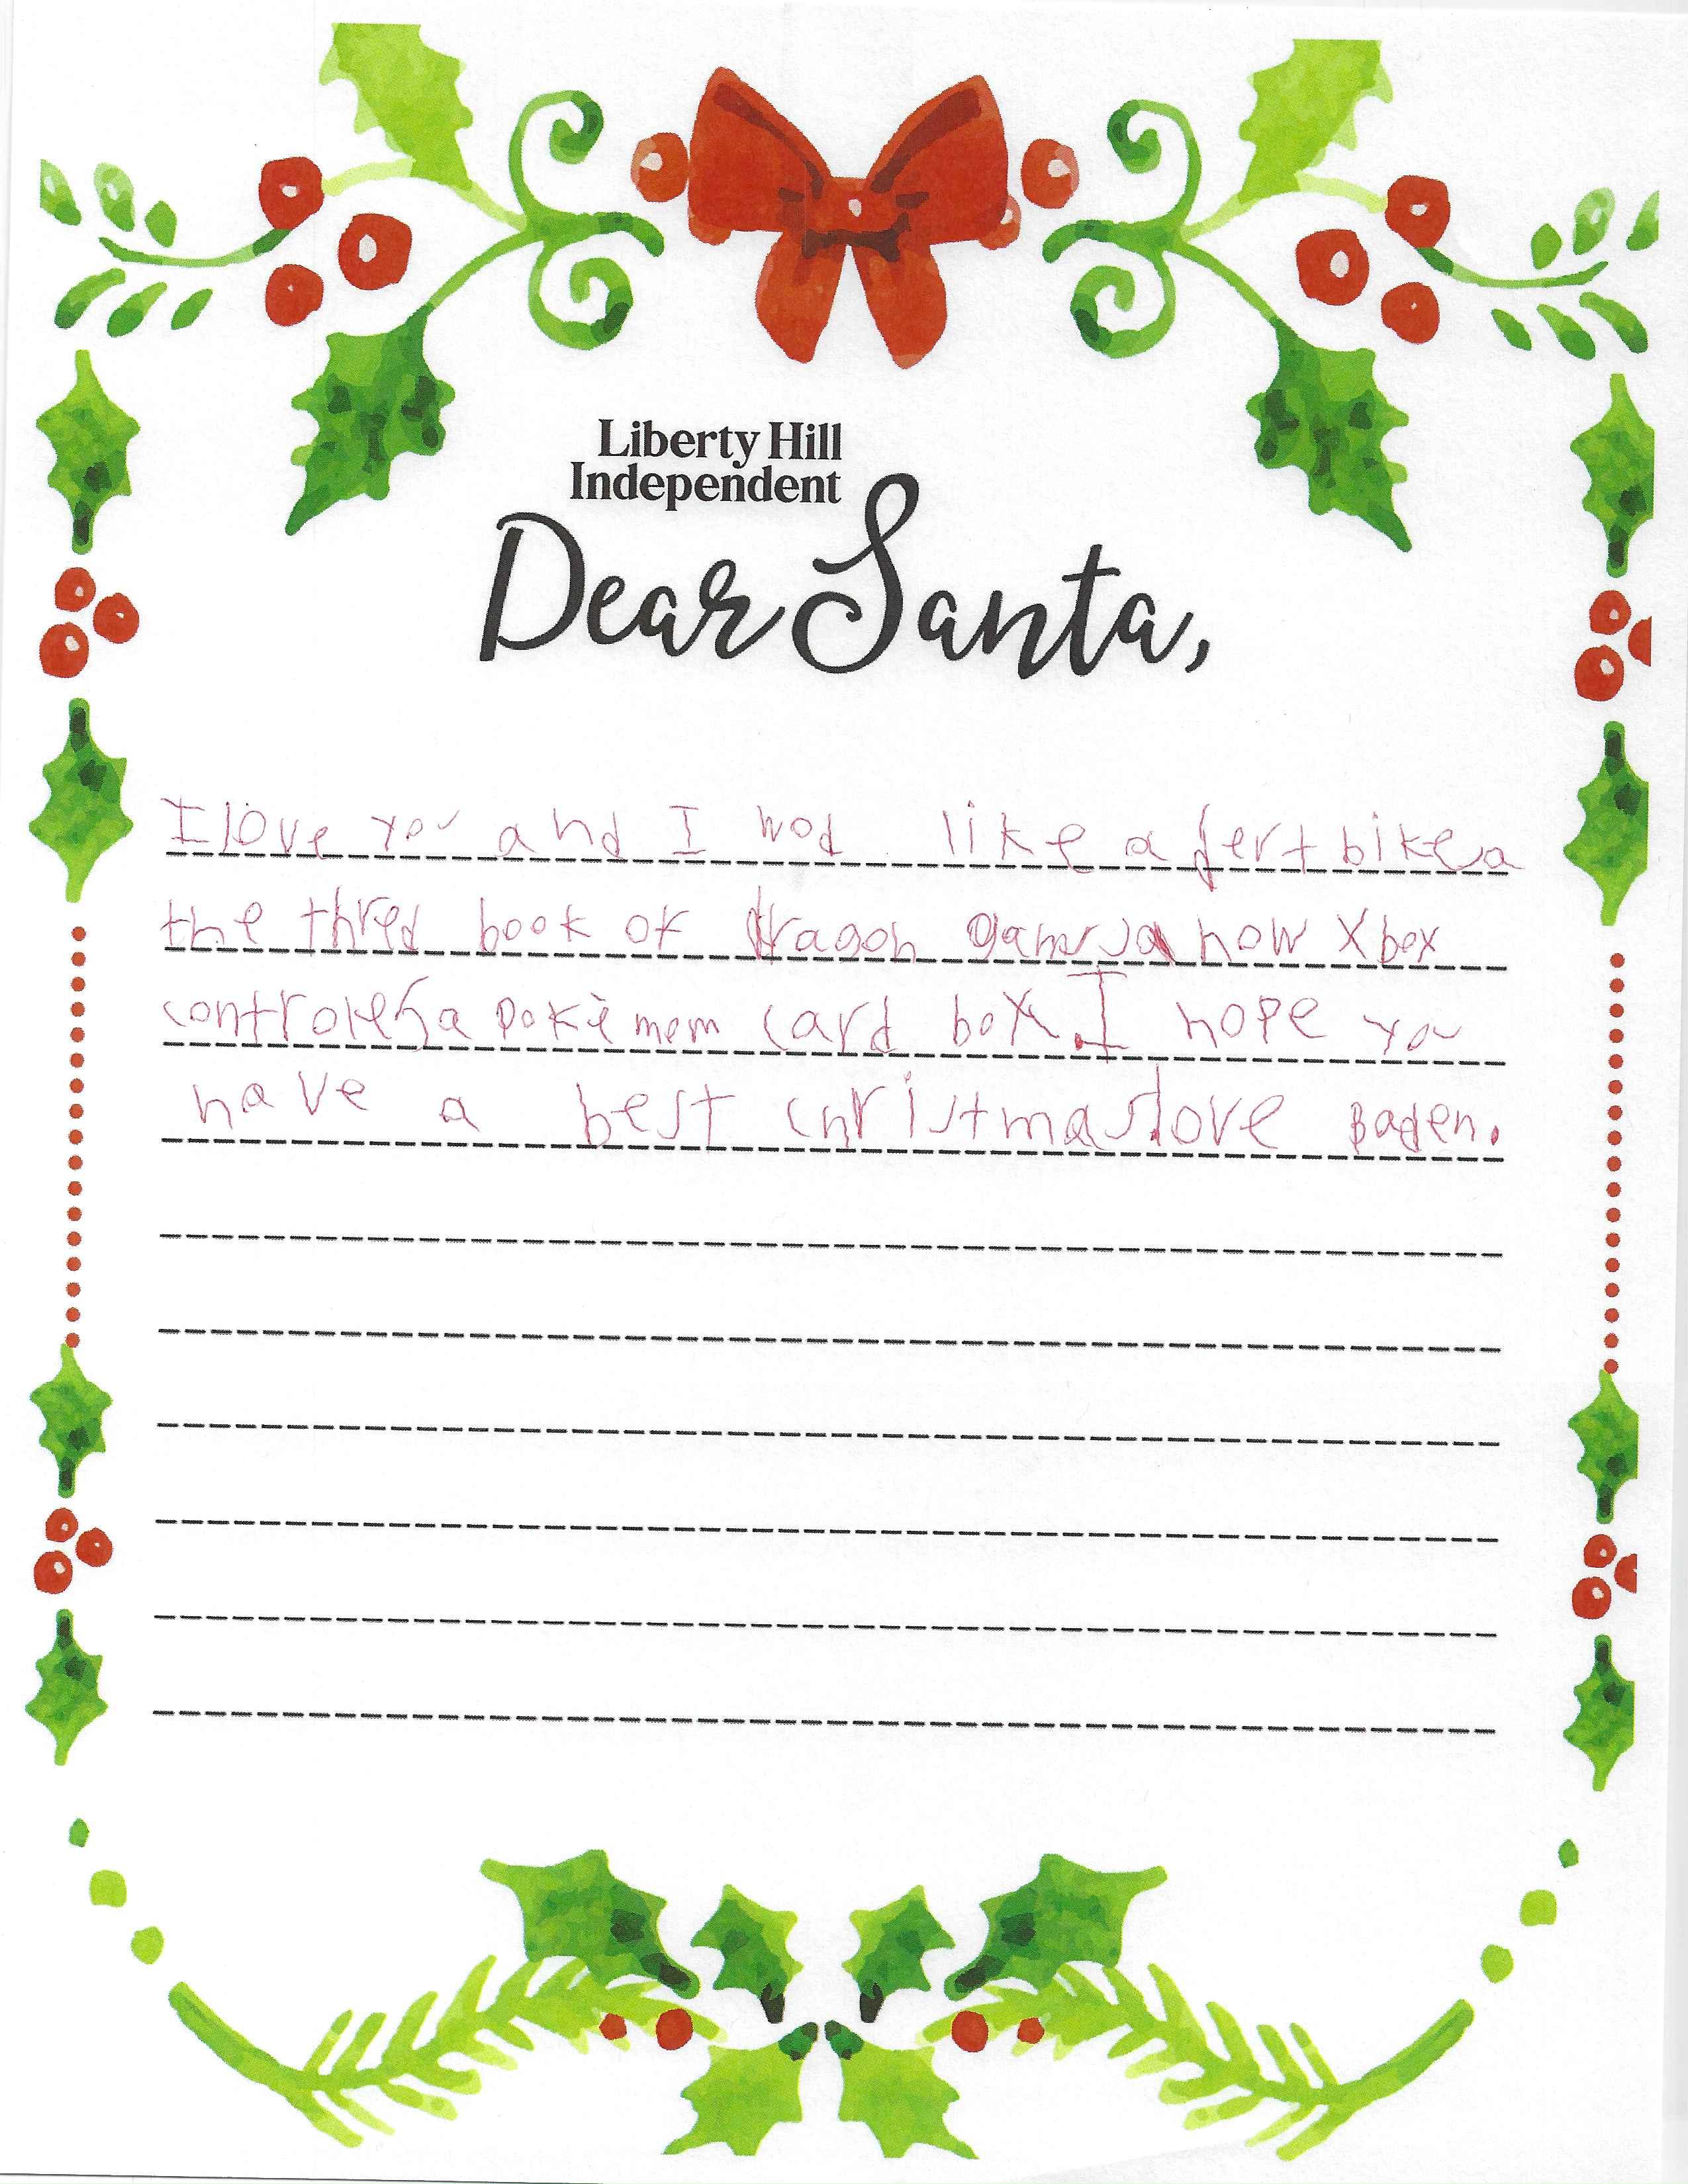 Liberty Hill
Independent
Dear Santa,
I love you and I wod like a fert bike a
the thred book of dragon a now Xbox
a pokèmem card box. I hope you
have a best christmas. love Baden.